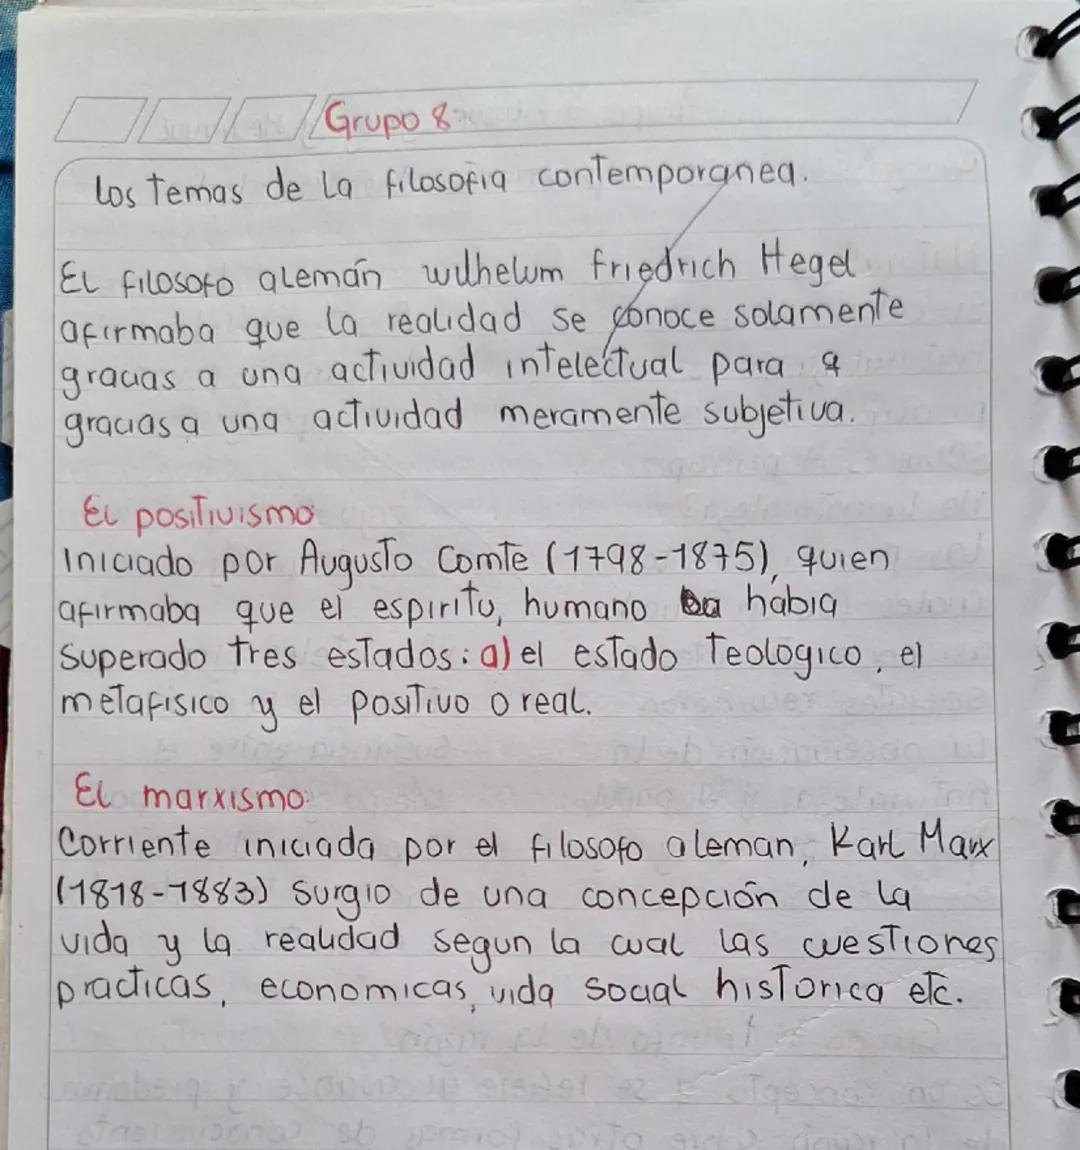 Grupo 8
los temas de la filosofia contemporanea.
El filosofo alemán wilhelum friedrich Hegel
afirmaba que la realidad se conoce solamente
gracias a una actividad intelectual para a
gracias a una actividad meramente subjetiva.
El positivismo
Iniciado por Augusto Comte (1798-1875), quien
afirmaba que el espiritu, humano había
Superado tres estados: a) el estado teologico, el
metafisico y el positivo o real.
El marxismo:
Corriente iniciada por el filosofo aleman, Karl Marx
(1818-1883) Surgio de una concepción de la
vida y la realidad segun la cual las cuestiones
practicas, economicas, vida social historica etc.